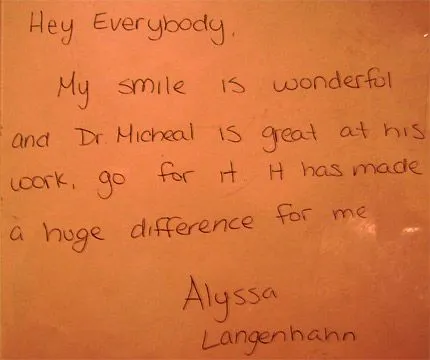 Hey Everybody,
My smile is wonderful
and Dr. Micheal is great at his
work, go for it. It has made
a huge difference for me
Alyssa
Langenhahn